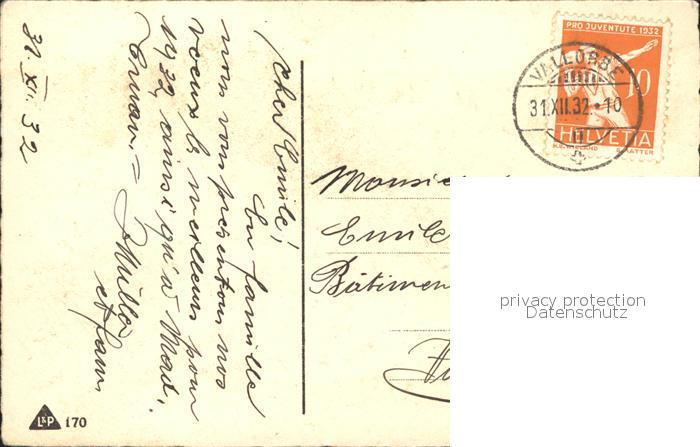 31. XII. 32
Cher Emile!
En famille
nous vous présentons nos
voeux les meilleurs pour
1933, ainsi qu'à Mad.
et fam.
L&P 170
PRO JUVENTUTE 1932
10
HELVETIA
VALLORBE
31.XII.32.-10
Monsie
Emile
Bâtimen
privacy protection
Datenschutz